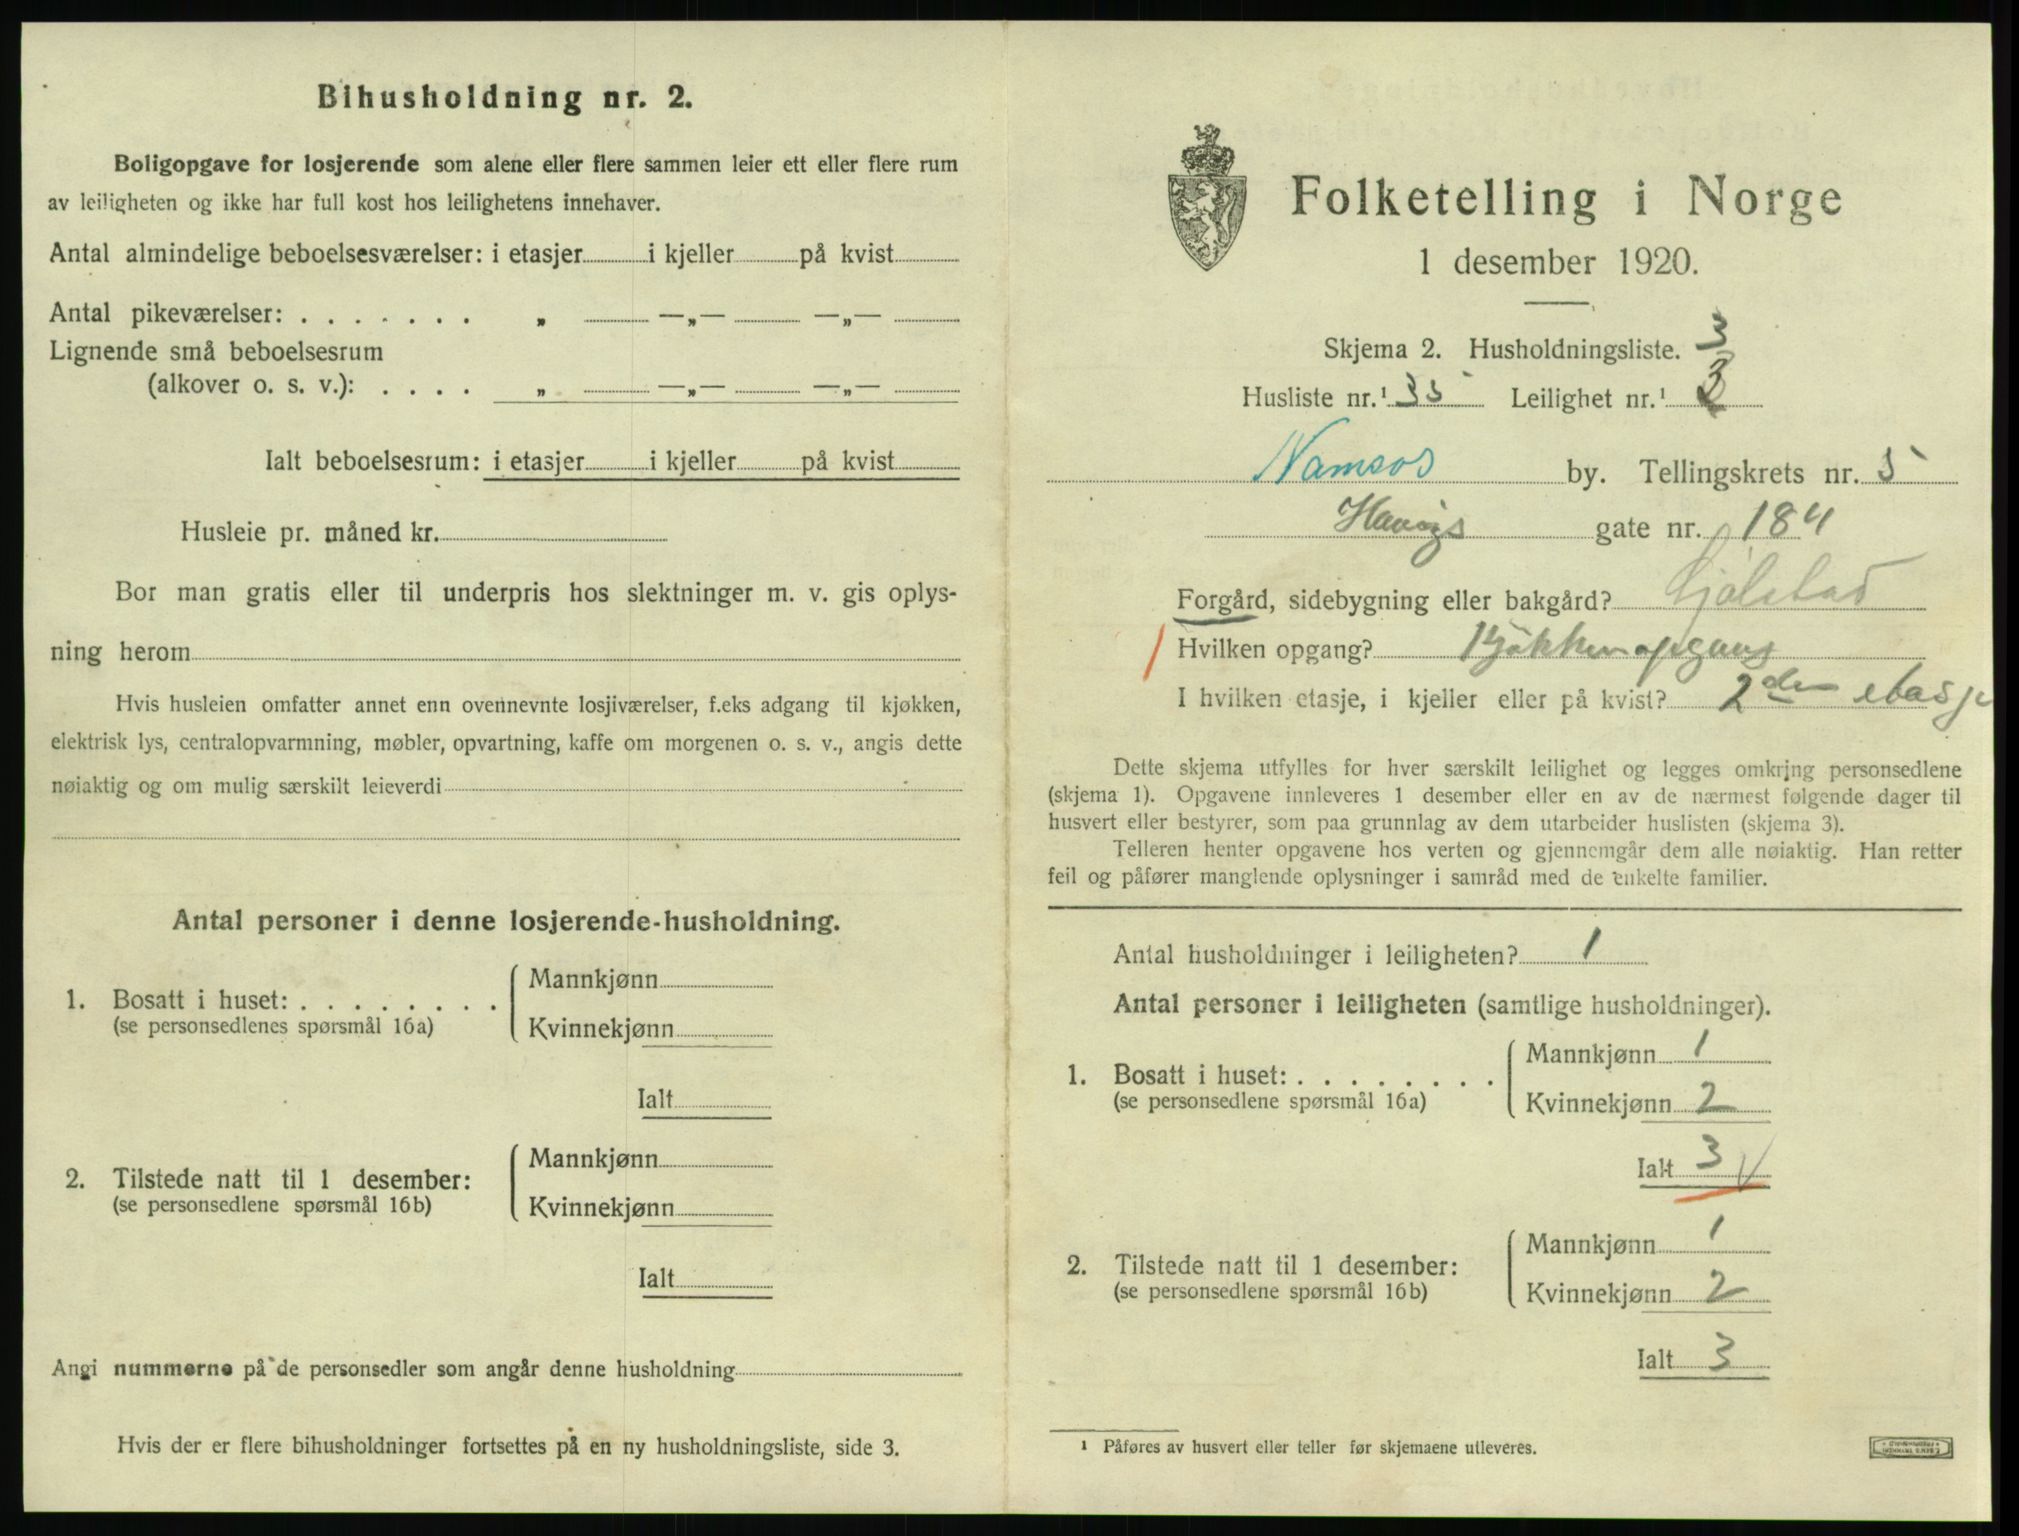 Bihusholdning nr. 2.
Boligopgave for losjerende som alene eller flere sammen leier ett eller flere rum
av leiligheten og ikke har full kost hos leilighetens innehaver.
Antal almindelige beboelsesværelser: i etasjer i kjeller på kvist
Antal pikeværelser: . . . . . . . „ —„— —„—
Lignende små beboelsesrum
(alkover o. s. v.): . . . . „ —„— —„—
Ialt beboelsesrum: i etasjer i kjeller på kvist
Husleie pr. måned kr.
Bor man gratis eller til underpris hos slektninger m. v. gis oplys-
ning herom
Hvis husleien omfatter annet enn ovennevnte losjiværelser, f.eks adgang til kjøkken,
elektrisk lys, centralopvarmning, møbler, opvartning, kaffe om morgenen o. s. v., angis dette
nøiaktig og om mulig særskilt leieverdi
Antal personer i denne losjerende-husholdning.
1. Bosatt i huset: . . . . . . . .
(se personsedlenes spørsmål 16a)
Mannkjønn
Kvinnekjønn
Ialt
2. Tilstede natt til 1 desember:
(se personsedlene spørsmål 16b)
Mannkjønn
Kvinnekjønn
Ialt
Angi nummerne på de personsedler som angår denne husholdning
Hvis der er flere bihusholdninger fortsettes på en ny husholdningsliste, side 3.
Folketelling i Norge
1 desember 1920.
Skjema 2. Husholdningsliste. 3
Husliste nr.¹ 35 Leilighet nr.¹ 3
Namsos by. Tellingskrets nr. 5
Havigs gate nr. 184
Forgård, sidebygning eller bakgård?
Hvilken opgang? Kjøkkenopgang
I hvilken etasje, i kjeller eller på kvist? 2den etasje
Dette skjema utfylles for hver særskilt leilighet og legges omkring personsedlene
(skjema 1). Opgavene innleveres 1 desember eller en av de nærmest følgende dager til
husvert eller bestyrer, som paa grunnlag av dem utarbeider huslisten (skjema 3).
Telleren henter opgavene hos verten og gjennemgår dem alle nøiaktig. Han retter
feil og påfører manglende oplysninger i samråd med de enkelte familier.
Antal husholdninger i leiligheten? 1
Antal personer i leiligheten (samtlige husholdninger).
1. Bosatt i huset: . . . . . . . .
(se personsedlene spørsmål 16a)
Mannkjønn 1
Kvinnekjønn 2
Ialt 3
2. Tilstede natt til 1 desember:
(se personsedlene spørsmål 16b)
Mannkjønn 1
Kvinnekjønn 2
Ialt 3
¹ Påføres av husvert eller teller før skjemaene utleveres.